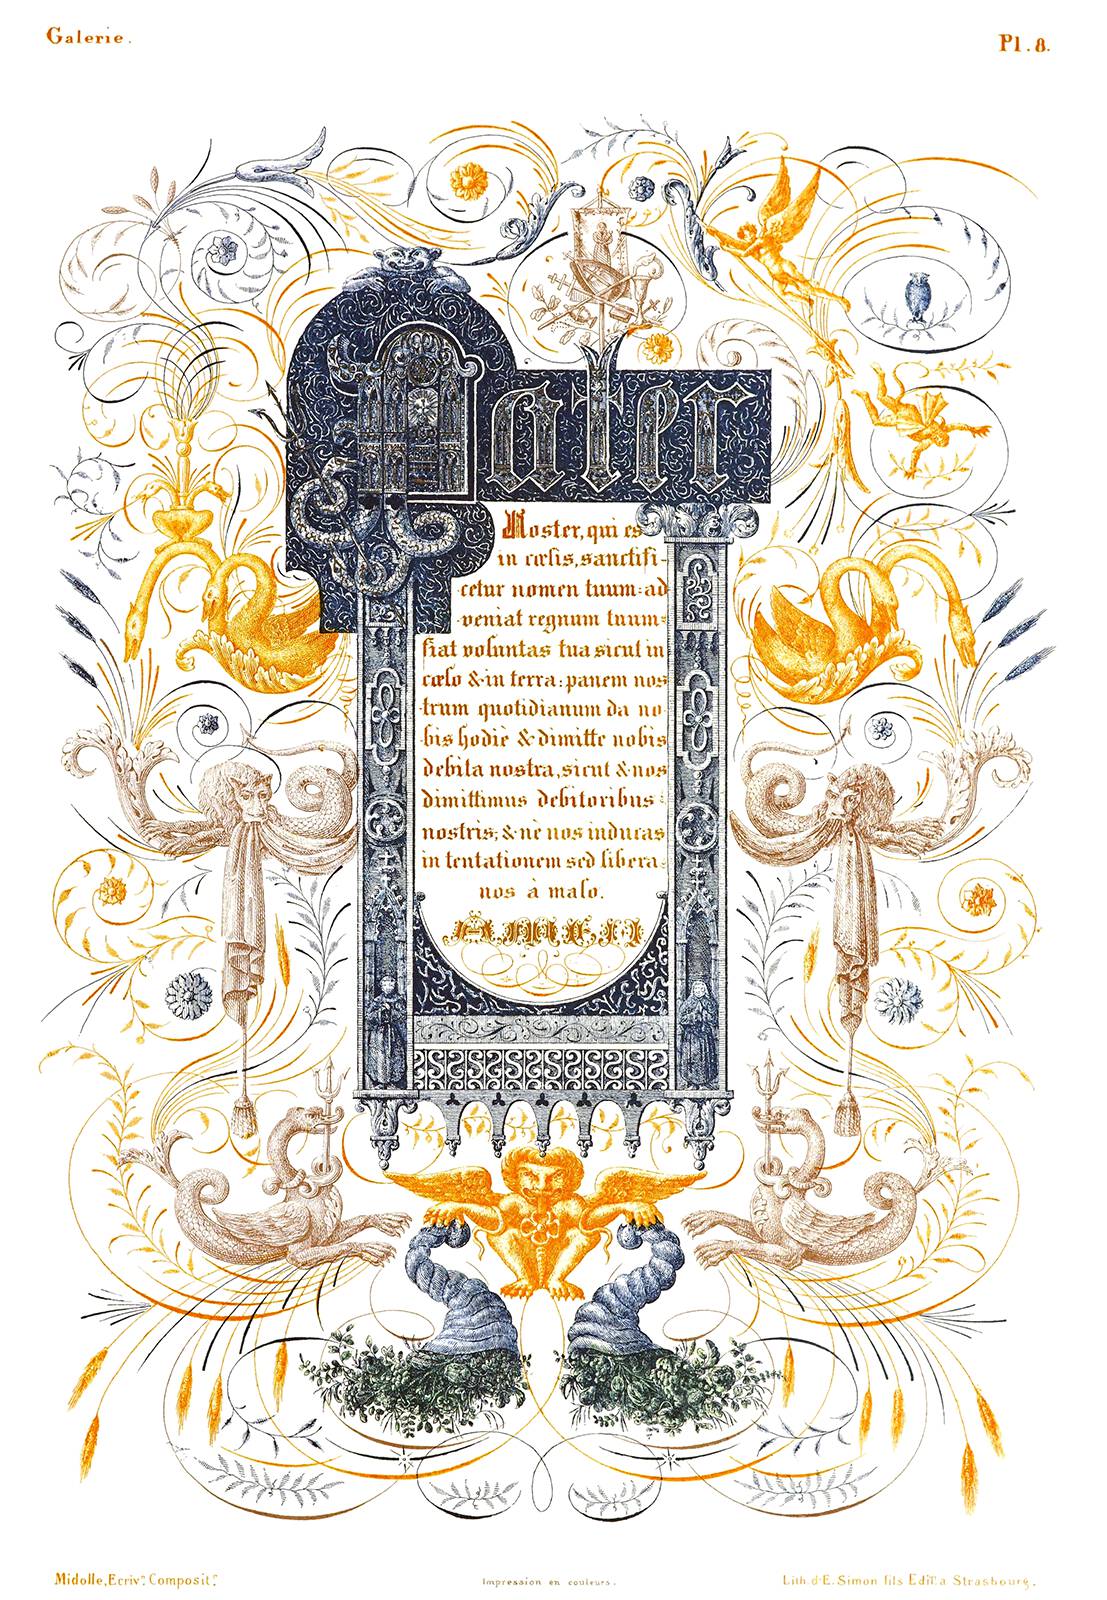 Galerie.
Pl. 8.
Pater
Noster, qui es
in cœlis, sanctifi-
cetur nomen tuum: ad
veniat regnum tuum:
fiat voluntas tua sicut in
cœlo & in terra: panem nos
trum quotidianum da no
bis hodiè & dimitte nobis
debita nostra, sicut & nos
dimittimus debitoribus
nostris; & nè nos inducas
in tentationem sed libera
nos à malo.
Amen
Midolle, Ecrivn. Compositr.
Impression en couleurs.
Lith. d'E. Simon fils Edit. a Strasbourg.